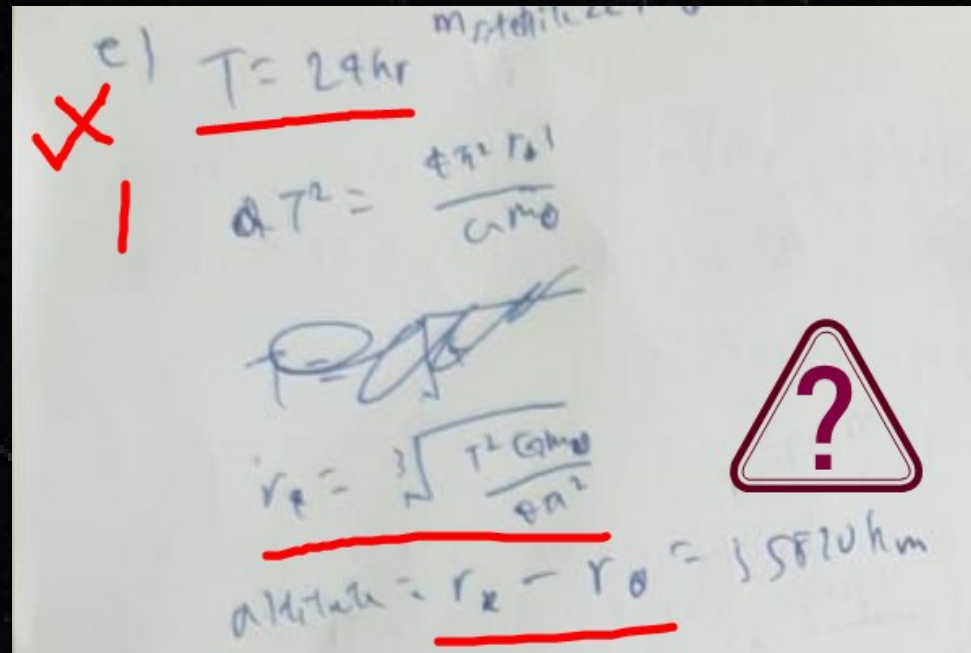 e) T = 24hr
1
T² = 4π² r³ / GM⊕
r = ∛ T² GM⊕ / 4π²
?
altitude = r - r⊕ = 35820 km